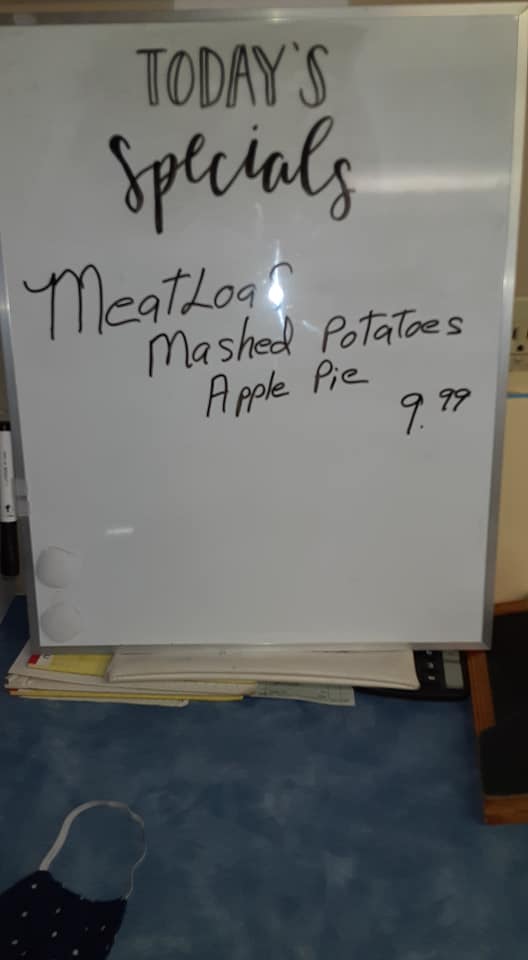 TODAY'S
Specials
MeatLoaf
Mashed Potatoes
Apple Pie
9.99